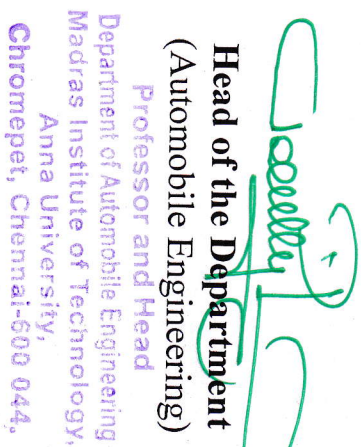 Head of the Department
(Automobile Engineering)
Professor and Head
Department of Automobile Engineering
Madras Institute of Technology,
Anna University,
Chromepet, Chennai-600 044.